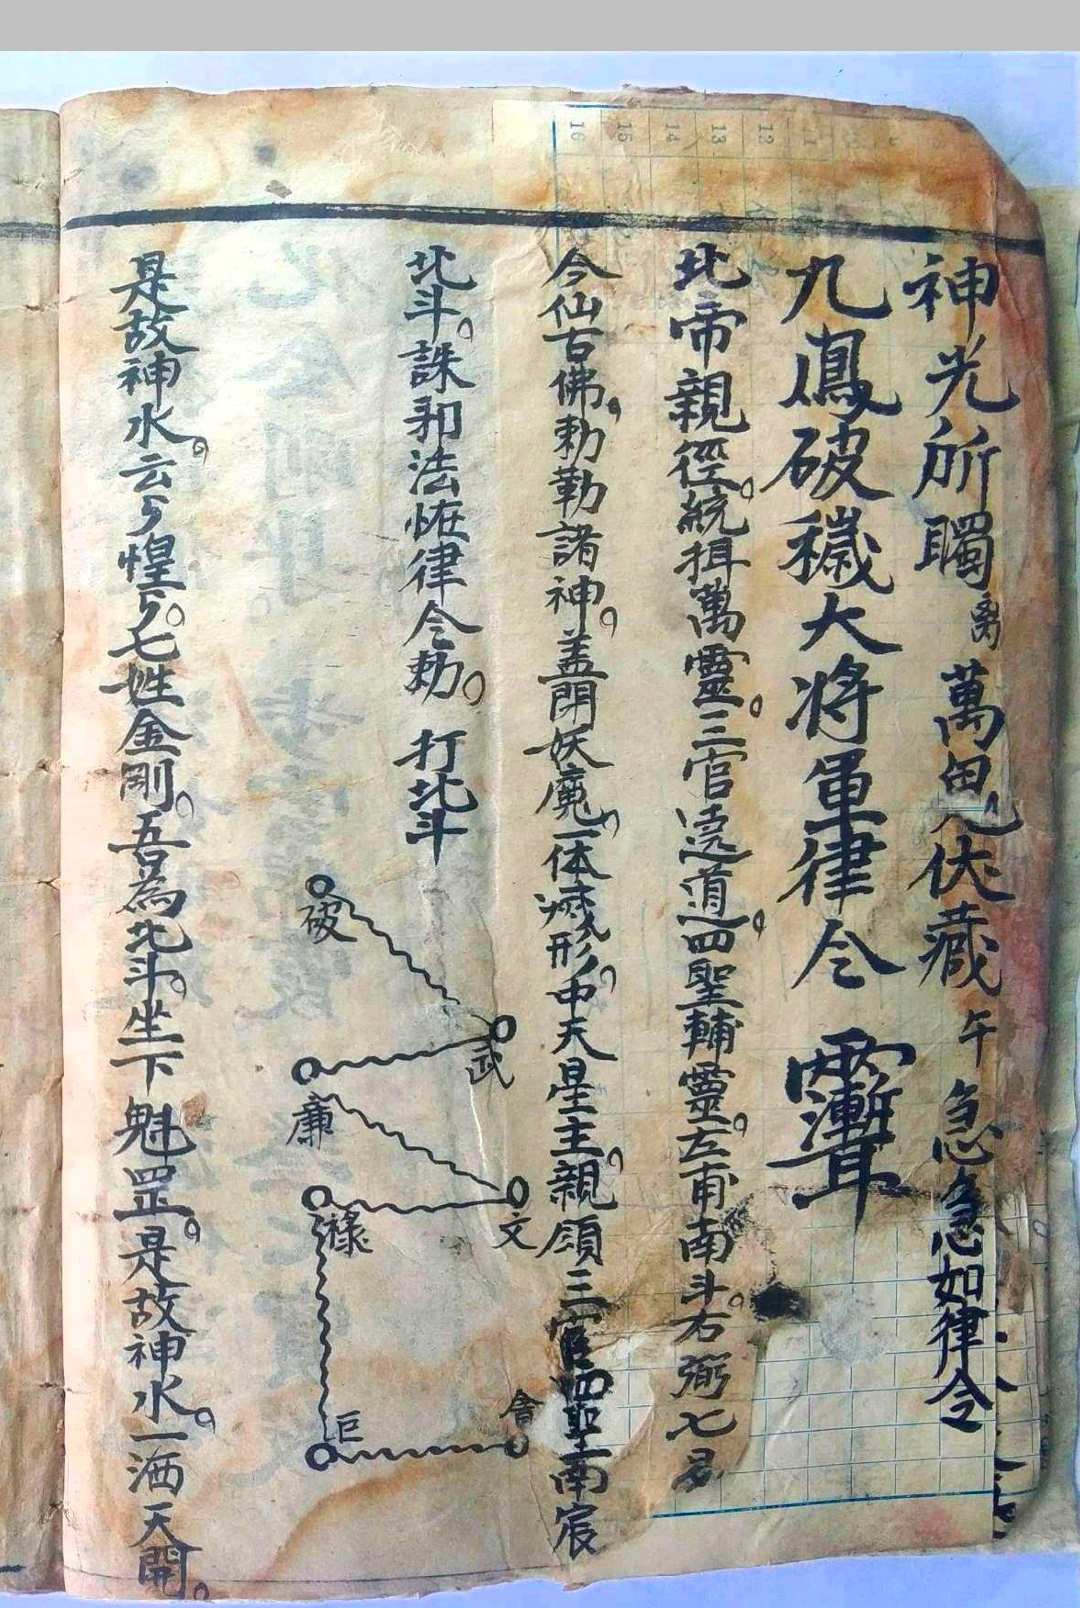 神光所矚离萬里伏藏午急急如律令
九鳳破穢大將軍律令
北帝親徑統揖萬靈三官遠道四聖輔靈左甫南斗右弼七
今仙古佛勅勒諸神盖閉妖魔一体滅形中天星主親領三官四聖南宸
北斗誅邪法恠律令勅 打北斗
破
武
廉
文
祿
巨
是故神水云々惶々七姓金剛吾為北斗坐下魁罡是故神水一洒天開
16
15
14
13
12
11